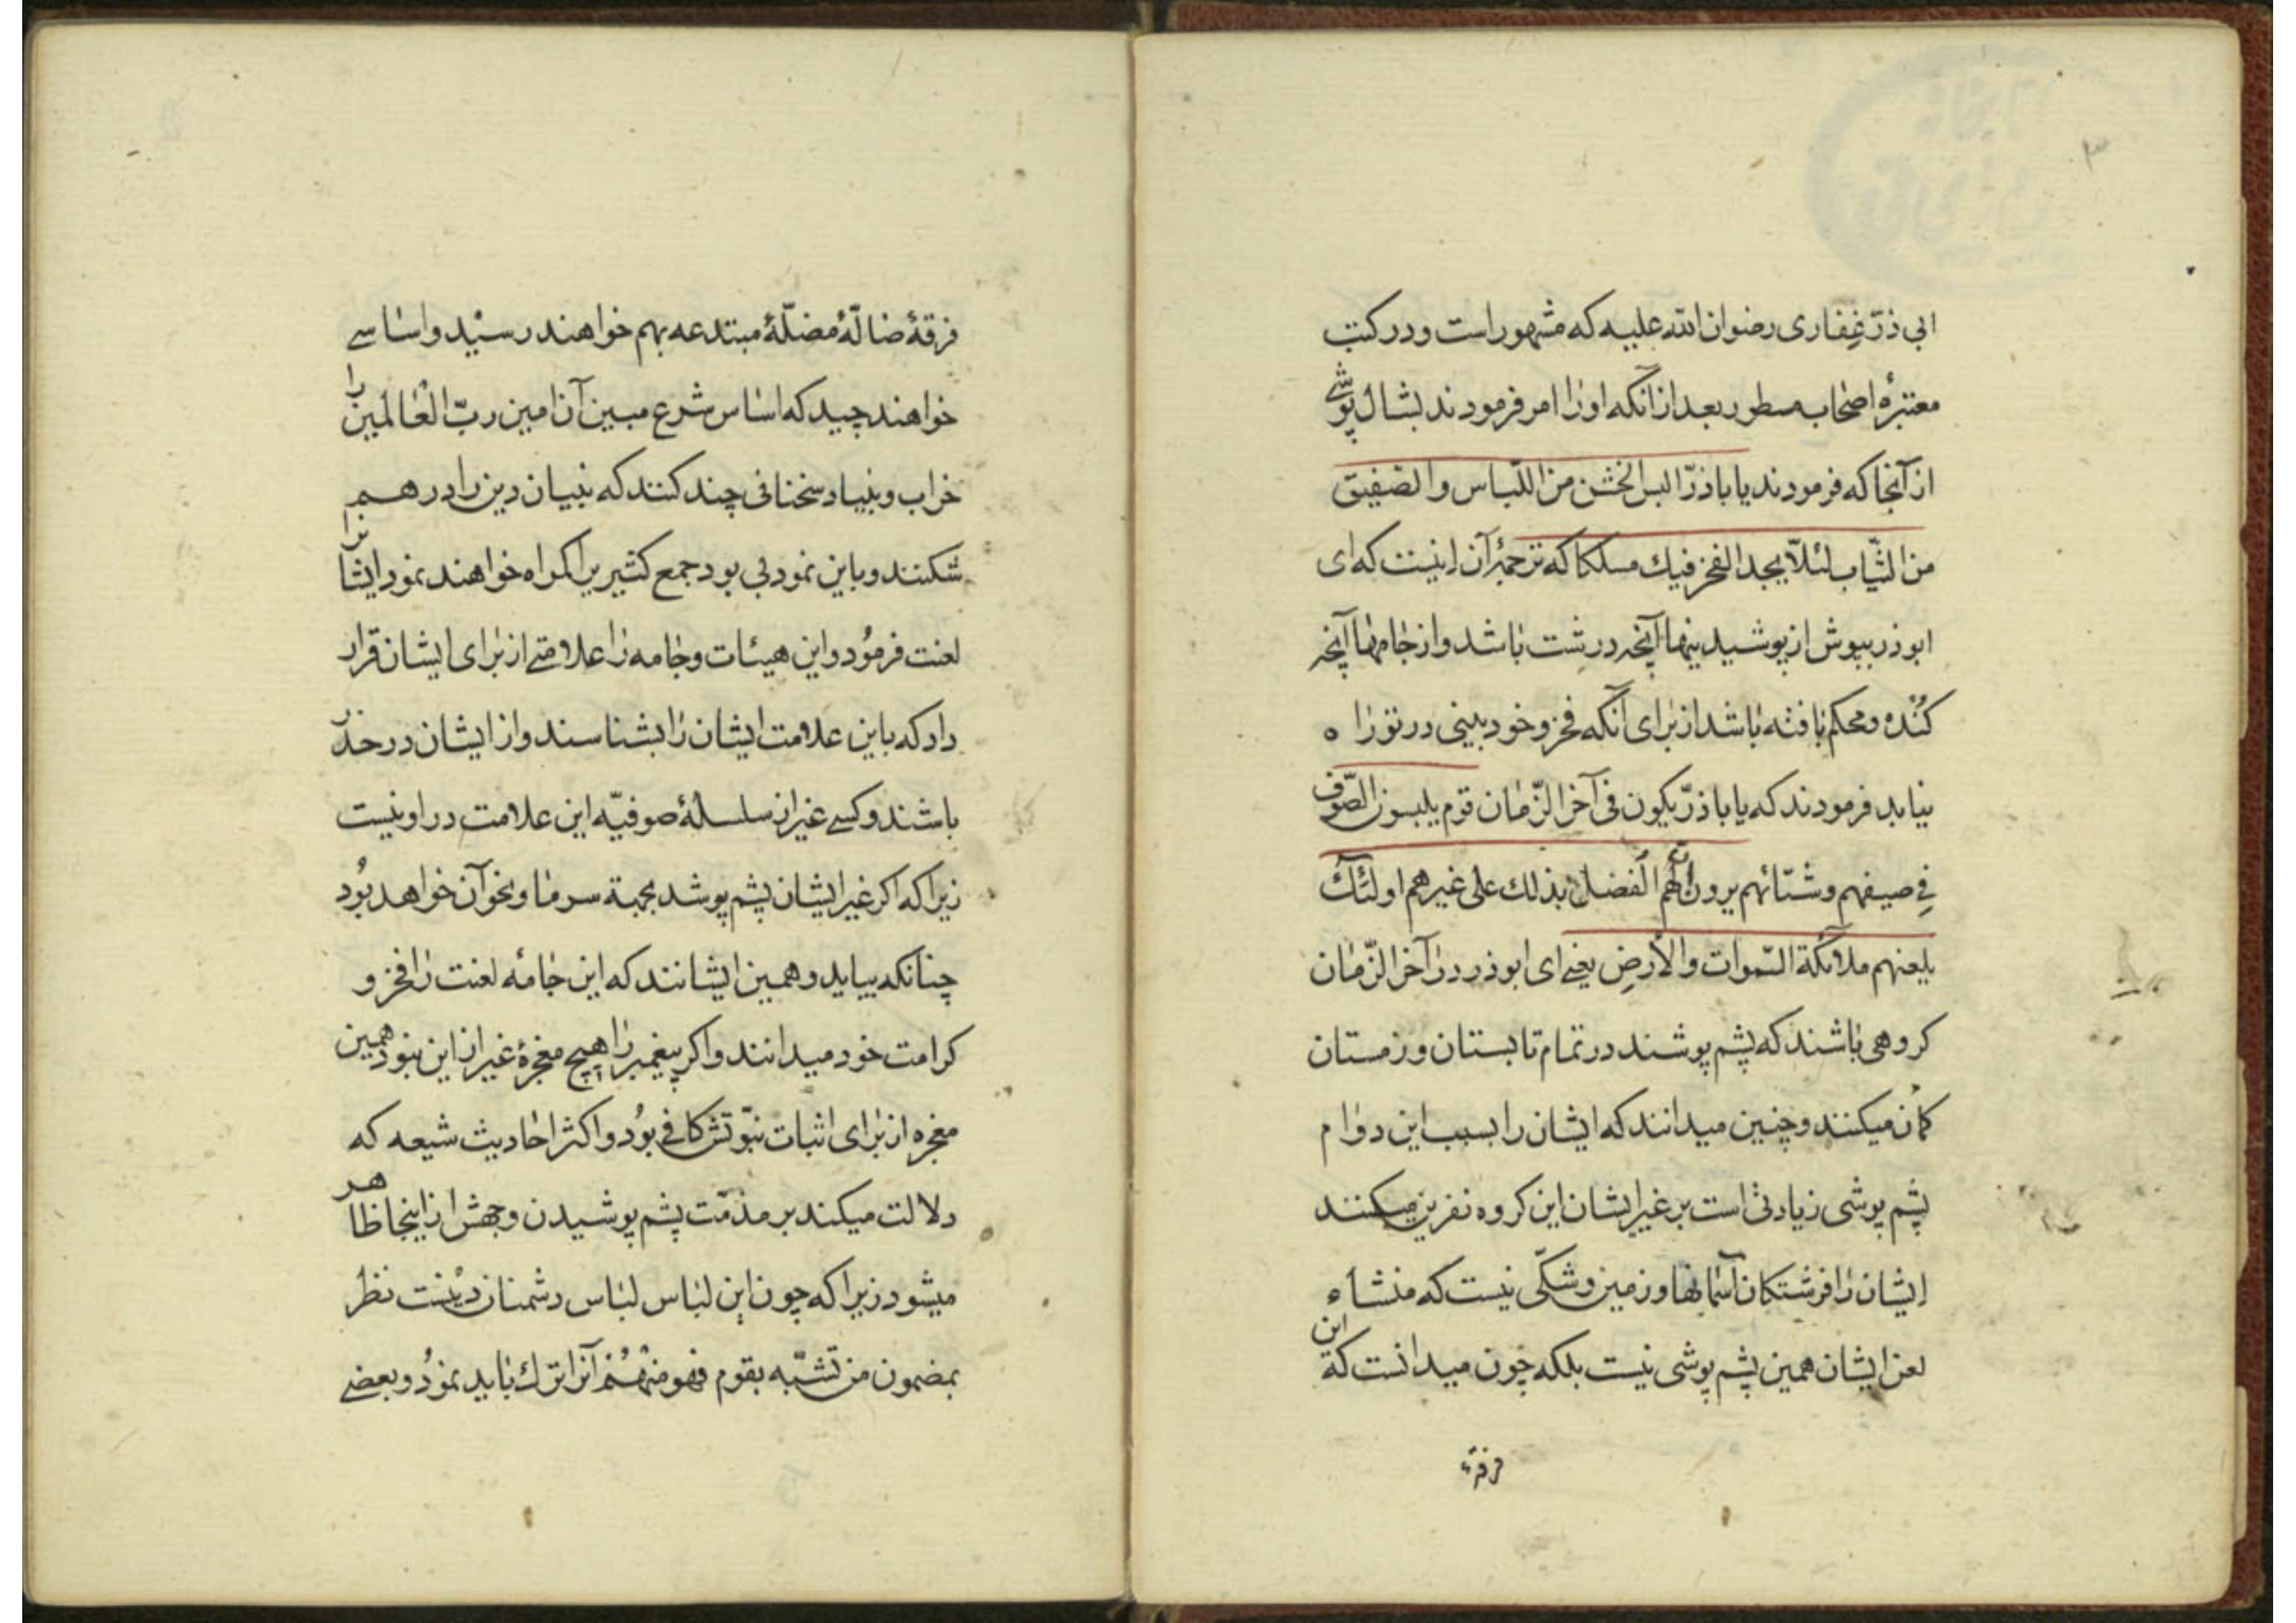 ۳
ابی ذرّ غِفاری رضوان الله علیه که مشهور است و در کتب
معتبرهٔ اصحاب مسطور بعد از آنکه اورا امر فرمودند بشال پوشی
از آنجا که فرمودند یا باذرّ البس الخشن من اللّباس والصّفیق
من الثّیاب لئلّا یجد الفخر فیك مسلکا که ترجمهٔ آن اینست که ای
ابوذر بپوش از پوشیدینها آنچه درشت باشد و از جامها آنچه
کُنده و محکم بافته باشد از برای آنکه فخر و خود بینی در تو راه
نیابد فرمودند که یا باذرّ یکون فی آخر الزّمان قوم یلبسون الصّوف
فی صیفهم وشتائهم یرون انّ لهم الفضل بذلك علی غیرهم اولئك
یلعنهم ملائکة السّموات والأرض یعنی ای ابوذر در آخر الزّمان
کروهی باشند که پشم پوشند در تمام تابستان و زمستان
کمان میکنند و چنین میدانند که ایشان را بسبب این دوام
پشم پوشی زیادتی است بر غیر ایشان این کروه نفرین میکنند
ایشان را فرشتکان آسمانها و زمین و شکّی نیست که منشاء
لعن ایشان همین پشم پوشی نیست بلکه چون میدانست که این
فرقهٔ
فرقهٔ ضالّهٔ مضلّهٔ مبتدعه بهم خواهند رسید و اساسی
خواهند چید که اساس شرع مبین آن امین ربّ العالمین را
خراب و بنیاد سخنانی چند کنند که بنیان دین را در هم
شکنند و باین نمود بی بود جمع کثیریرا کمراه خواهند نمود ایشانرا
لعنت فرمُود و این هیئات و جامه را علامتی از برای ایشان قرار
داد که باین علامت ایشان را بشناسند و از ایشان در حذر
باشند و کسی غیر از سلسلهٔ صوفیّه این علامت در او نیست
زیرا که اکر غیر ایشان پشم پوشد بجهة سرما و نحو آن خواهد بُود
چنانکه بیاید و همین ایشانند که این جامهٔ لعنت را فخر و
کرامت خود میدانند و اکر پیغمبر را هیچ معجزهٔ غیر از این نبود همین
معجزه از برای اثبات نبوّتش کافی بُود و اکثر احادیث شیعه که
دلالت میکند بر مذمّت پشم پوشیدن وجهش از اینجا ظاهر
میشود زیرا که چون این لباس لباس دشمنان دینست نظر
بمضمون من تشبّه بقوم فهو منهُم آنرا ترك باید نمُود و بعضی